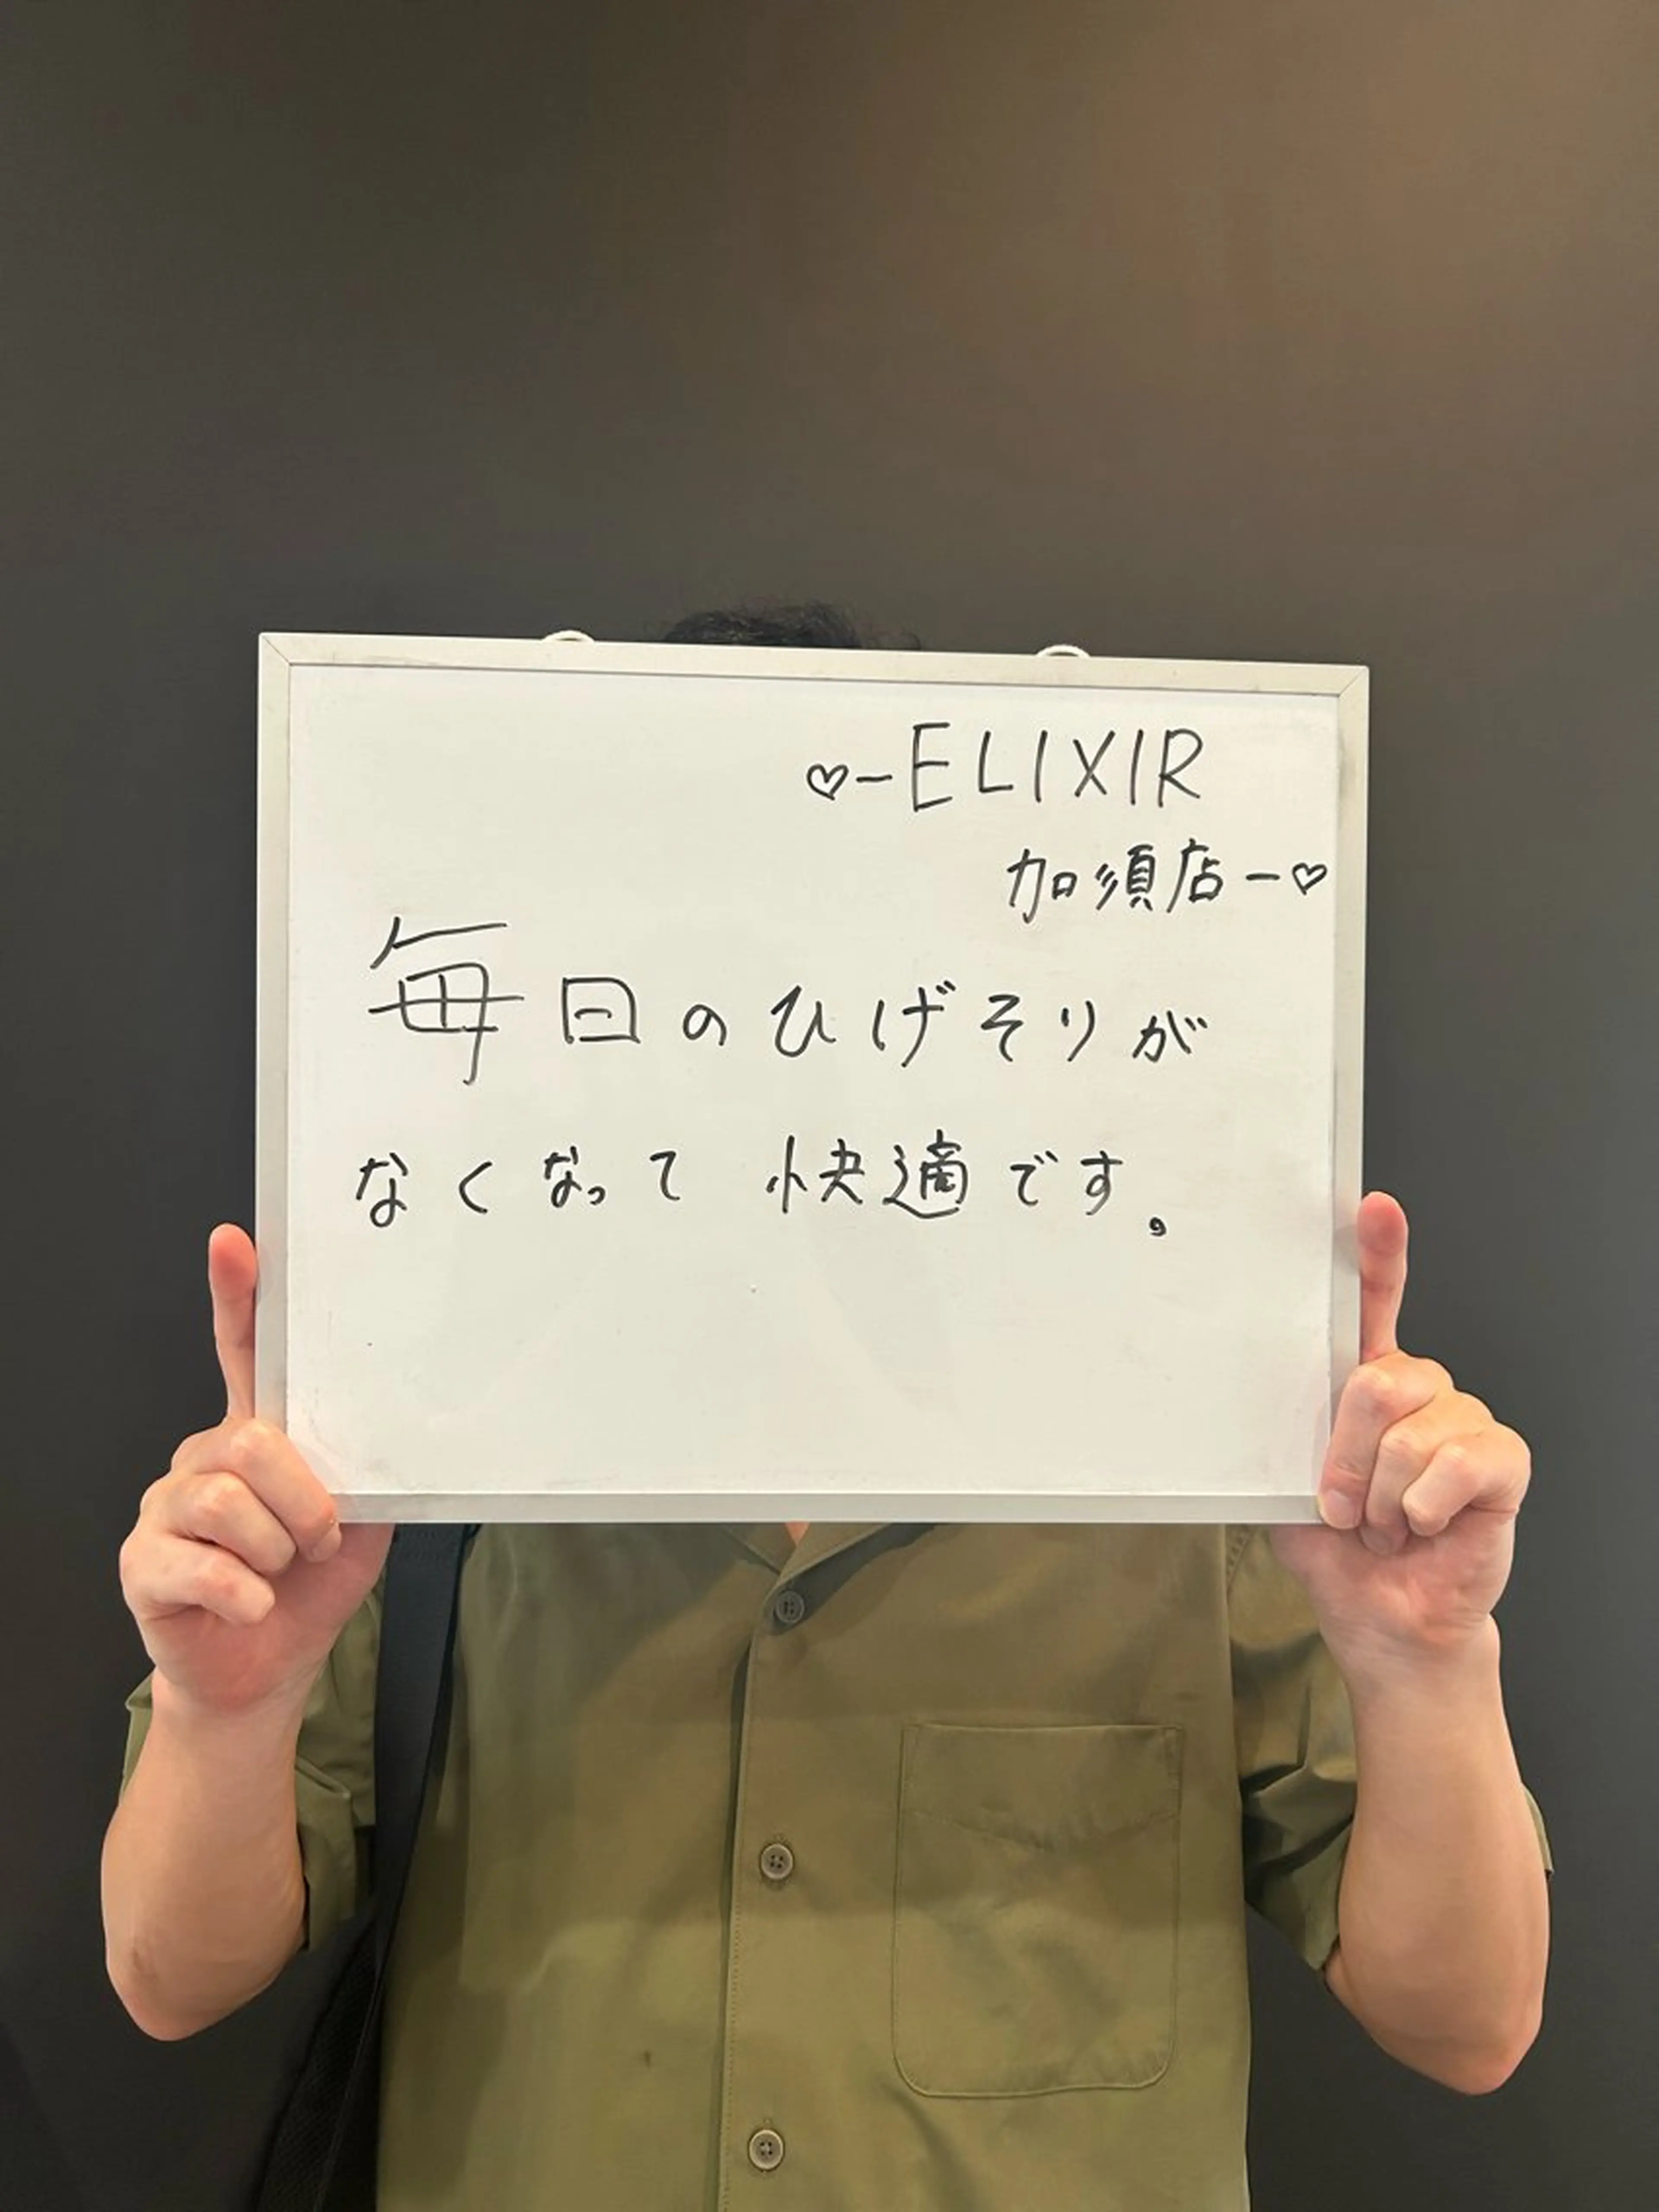 ♡-ELIXIR
加須店-♡
毎日のひげそりが
なくなって 快適です。